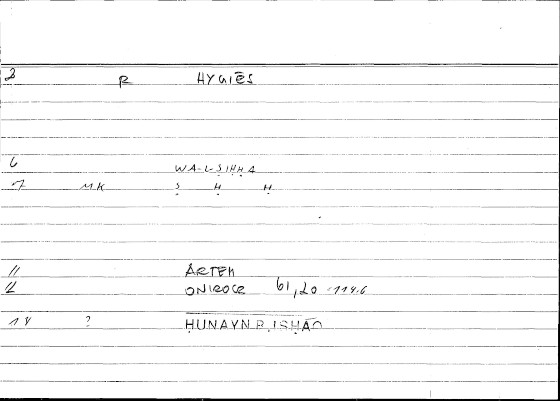 2 R HYGIĒS
6 WA-L-ṢIḤḤA
7 MK Ṣ Ḥ Ḥ
11 ARTEM
12 ONIROCR 61,20 114.6
14 ? ḤUNAYN B. ISḤĀQ